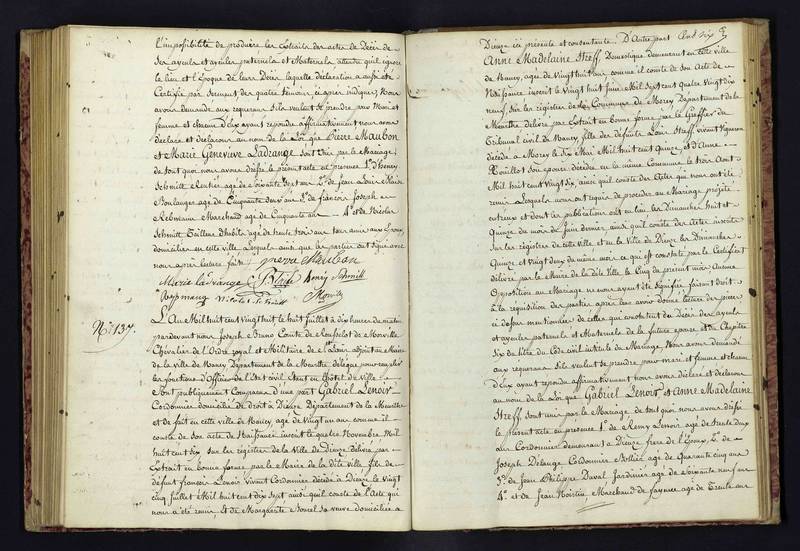 l'impossibilité de produire les Extraits des actes de Décès de
ses ayeuls et ayeules paternels et Maternels, attendu qu'il ignore
le lieu et l'Epoque de leurs Décès laquelle déclaration a aussi été
Certifiée par serment des quatre témoins ci après indiqués, Nous
avons demandé aux requerans s'ils veulent se prendre pour Mari et
femme et chacun d'Eux ayant repondu affirmativement nous avons
déclaré et declarons au nom de la Loi que Pierre Maubon
et Marie Genevieve Ladrange sont Unis par le Mariage,
de tout quoi nous avons dressé le présent acte en presence 1º d'henry
Schmitt Rentier agé de soixante sept ans 2º de Jean Louis
Boulanger agé de Cinquante ans 3º de françois Joseph
Marchand agé de Cinquante ans 4º et de Nicolas
Schmitt Tailleur d'habits agé de trente trois ans tous amis aux Epoux
domiciliés en cette ville Lesquels ainsi que les parties ont signé avec
nous après lecture faite. pierre Maubon
Marie ladrange henry Schmitt
Nicolas Schmitt
Nº 137.
L'An Mil huit cent vingt huit le huit Juillet à dix heures du matin
pardevant nous Joseph Bruno Comte de Rousselot de Morville
Chevalier de l'Ordre royal et Militaire de St Louis adjoint au Maire
de la ville de Nancy Département de la Meurthe délégué pour remplir
les fonctions d'Officier de l'Etat civil Etant en l'hôtel de ville
sont publiquement Comparus d'une part Gabriel Lenoir
Cordonnier domicilié de droit à Dieuze Département de la Meurthe
et de fait en cette ville de Nancy agé de Vingt un ans comme il
conste de son acte de Naissance inscrit le quatre Novembre Mil
huit cent six sur les registres de la Ville de Dieuze délivré par
Extrait en bonne forme par le Maire de la dite ville fils de
défunt françois Lenoir vivant Cordonnier décédé à Dieuze le Vingt
cinq Juillet Mil huit cent dix sept ainsi qu'il conste de l'Acte qui
nous a été remis, Et de Marguerite Noucel sa veuve domiciliée à
Dieuze ici présente et consentante. D'Autre part Cent six
Anne Madelaine Streff, Domestique demeurant en cette ville
de Nancy, agée de Vingt huit ans comme il conste de son Acte de
Naissance inscrit le Vingt huit Mil sept cent Quatre Vingt dix
neuf, sur les registres de la Commune de Morey Département de la
Meurthe délivré par Extrait en bonne forme par le Greffier du
Tribunal civil de Nancy, fille des defunts Louis Streff vivant Vigneron
décédé à Morey le Six Mai Mil huit cent Quinze, et d'Anne
Rouillot son épouse décédée en la même Commune le trois Aout
Mil huit cent vingt six, ainsi qu'il conste des Actes qui nous ont été
remis Lesquels nous ont requis de procéder au Mariage projetté
entreux et dont les publications ont eu lieu les Dimanches huit et
Quinze du mois de Juin dernier, ainsi qu'il conste des Actes inscrits
sur les registres de cette ville et en la Ville de Dieuze les Dimanches
Quinze et vingt deux du même mois, ce qui est constaté par le Certificat
délivré par le Maire de la dite Ville le Cinq du présent mois, aucune
Opposition au Mariage ne nous ayant été signifiée faisant Droit
à la requisition des parties après leur avoir donné lecture des pieces
ci dessus mentionnées de celles qui constatent des Décès des ayeuls
et ayeules paternels et Maternels de la future epouse et du Chapitre
Six du titre du Code civil intitulé du Mariage. Nous avons demandé
aux requerans s'ils veulent se prendre pour mari et femme et chacun
d'eux ayant repondu affirmativement nous avons déclaré et declarons
au nom de la Loi que Gabriel Lenoir et Anne Madelaine
Streff sont unis par le Mariage de tout quoi nous avons dressé
le présent acte en presence 1º de Remy Lenoir agé de trente deux
ans Cordonnier demeurant à Dieuze frere de l'Epoux 2º de
Joseph Délange Cordonnier Bottier agé de Quarante cinq ans
3º de Jean Philippe Duval Jardinier agé de soixante neuf ans
4º et de Jean Marchand de fayence agé de Trente ans